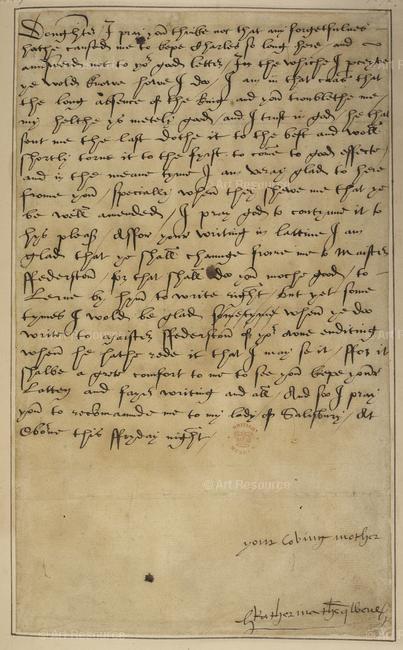 Doughter I pray you thinke not that any forgetfulnes
hathe caused me to kepe Charles so long here and
answered not to yor good letter / In the whiche I perceyve
ye wold knowe howe I do / I am in that case that
the long absence of the king and you troublethe me /
my helthe ys metely good / and I trust in god / he that
sent me the last dothe it to the best and woll
shortly torne it to the fyrst to come to good effecte /
and in the meane tyme I am veray glad to here
frome you / specially when they shewe me that ye
be well amended / I pray god to contynue it to
hys pleasr / As for your writing in lattine I am
glad that ye shall chaunge frome me to Maister
ffederston / for that shall do you moche good / to
Lerne by hym to write right / but yet some
tymes I wolde be glad when ye do
write to Maister ffederston of yor owne enditing
when he hathe rede it that I may se it / ffor it
shalbe a grete comfort to me to see you kepe your
Latten and fayer writing and all / And soo I pray
you to recommaunde me to my lady of Salisbury / At
Oborne this ffryday night /
your loving mother
Katherina the qwene
© Art Resource